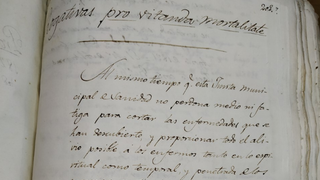 208.
rogativas pro vitanda mortalitate
Al mismo tiempo q.e esta Junta muni-
cipal de Sanidad no perdona medio ni fa-
tiga para cortar las enfermedades que se
han descubierto y proporcionar todo el ali-
vio posible a los enfermos tanto en lo espi-
ritual como temporal, y penetrada de los